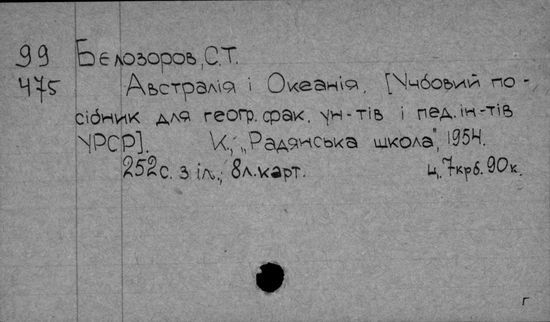 99 Бєлозоров, С.Т.
475 Австралія і Океанія. [Учбовий по-
сібник для геогр. фак. ун-тів і пед. ін-тів
УРСР]. К., „Радянська школа", 1954.
252 с. з іл.; 8 л. карт. Ц. 7 крб. 90 к.
г